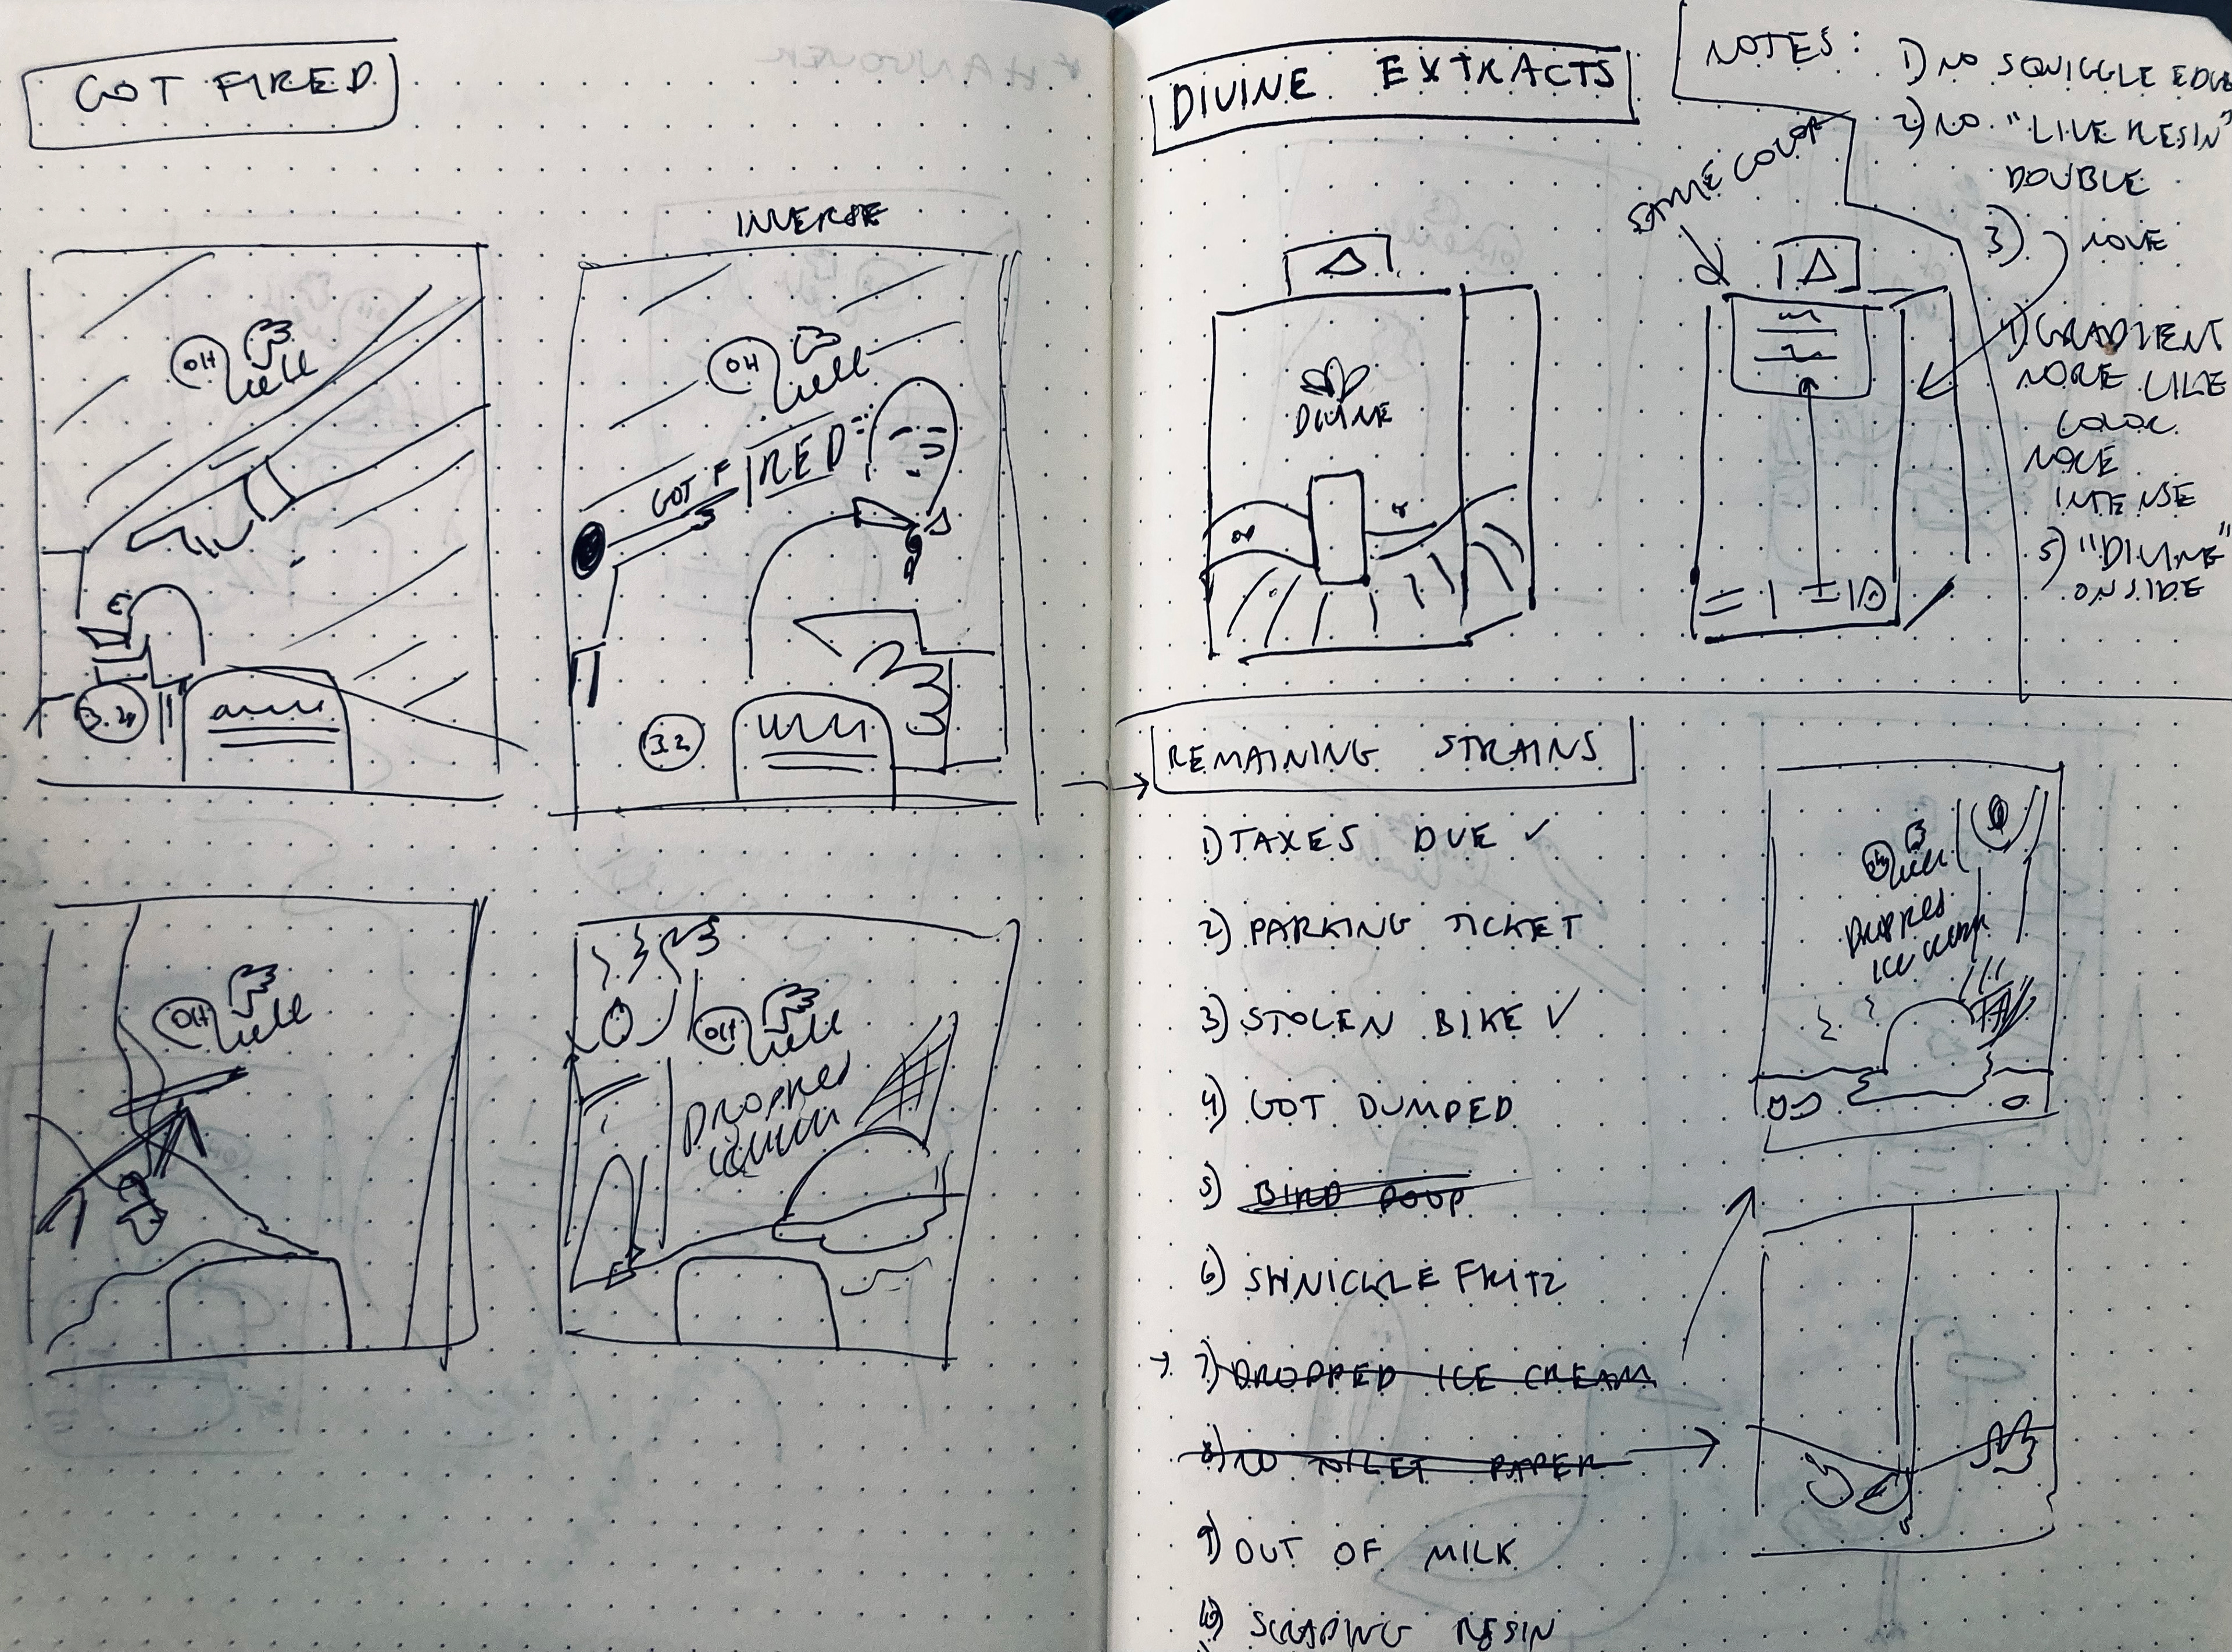 GOT FIRED
INVERSE
OH
well
OH
well
GOT FIRED
3.2
3.2
OH
well
OH
well
DROPPED
DIVINE EXTRACTS
NOTES:
1) NO SQUIGGLE EDGE
2) NO "LIVE RESIN"
DOUBLE
3) MOVE
4) GRADIENT
MORE LIKE
COLOR
MORE
INTENSE
5) "DIVINE"
ON SIDE
SAME COLOR
DIVINE
REMAINING STRAINS
1) TAXES DUE ✓
2) PARKING TICKET
3) STOLEN BIKE ✓
4) GOT DUMPED
5) BIRD POOP
6) SHNICKLE FRITZ
→ 7) DROPPED ICE CREAM
8) NO TOILET PAPER
9) OUT OF MILK
10) SCRAPING RESIN
OH
well
DROPPED
ICE CREAM